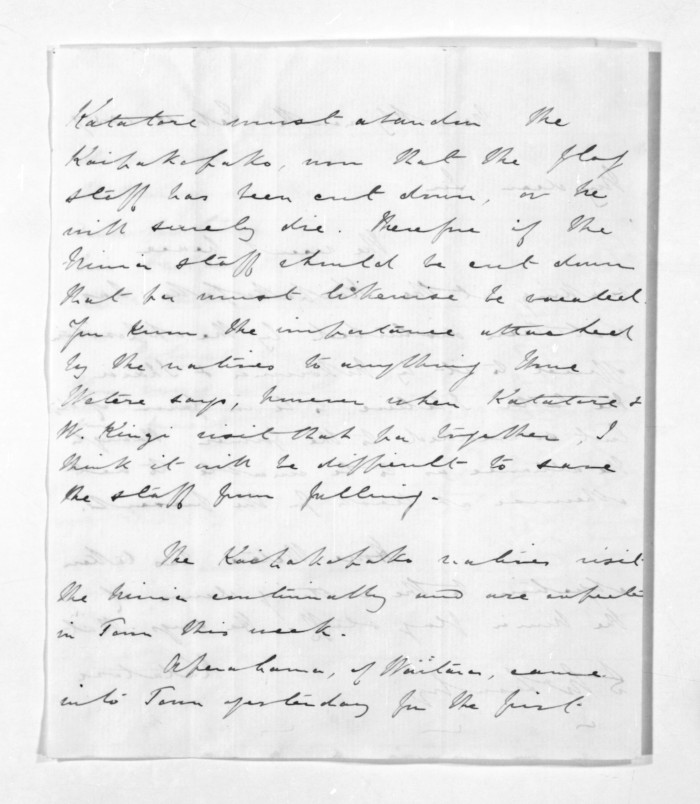 Katatore must abandon the
Kaipakopako, now that the flag
staff has been cut down, or he
will surely die. Therefore if the
Ninia staff should be cut down
that pa must likewise be vacated.
You know the importance attached
by the natives to anything Ihaia
Wetere says, however when Katatore &
W. Kingi visit that pa together, I
think it will be difficult to save
the staff from falling.
The Kaipakopako natives visit
the Ninia continually and are expected
in Town this week.
Aperahama, of Waitara, came
into Town yesterday for the first